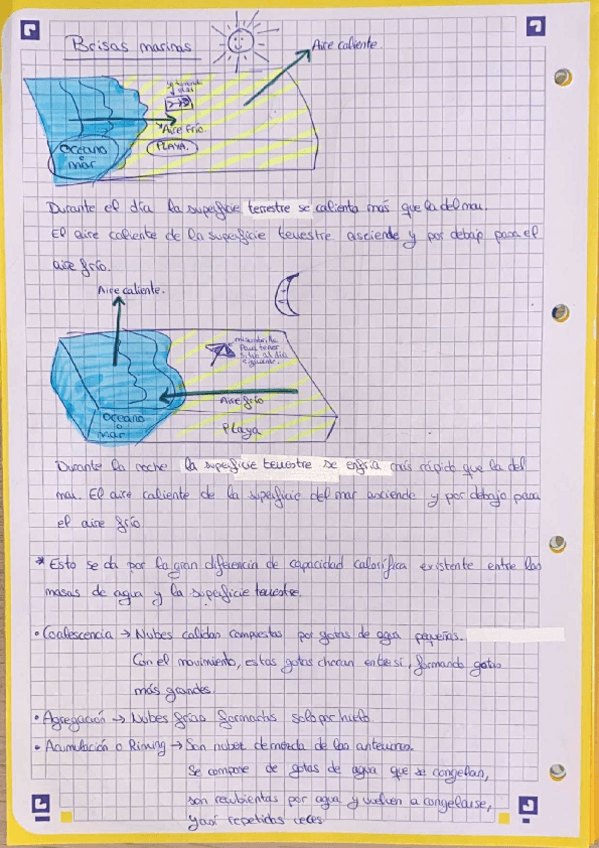 Brisas marinas
Aire caliente.
Aire frío.
Océano
o
mar
PLAYA.
Durante el día la superficie terrestre se calienta más que la del mar.
El aire caliente de la superficie terrestre asciende y por debajo pasa el
aire frío.
Aire caliente.
sombrilla
para tener
sitio al día
siguiente.
Aire frío
océano
o
mar
Playa
Durante la noche la superficie terrestre se enfría más rápido que la del
mar. El aire caliente de la superficie del mar asciende y por debajo pasa
el aire frío.
* Esto se da por la gran diferencia de capacidad calorífica existente entre las
masas de agua y la superficie terrestre.
• Coalescencia → Nubes calidas compuestas por gotas de agua pequeñas.
Con el movimiento, estas gotas chocan entre si, formando gotas
más grandes.
• Agregación → Nubes frías formadas solo por hielo.
• Acumulación o Riming → Son nubes de mezcla de las anteriores.
Se compone de gotas de agua que se congelan,
son recubiertas por agua y vuelven a congelarse,
y así repetidas veces